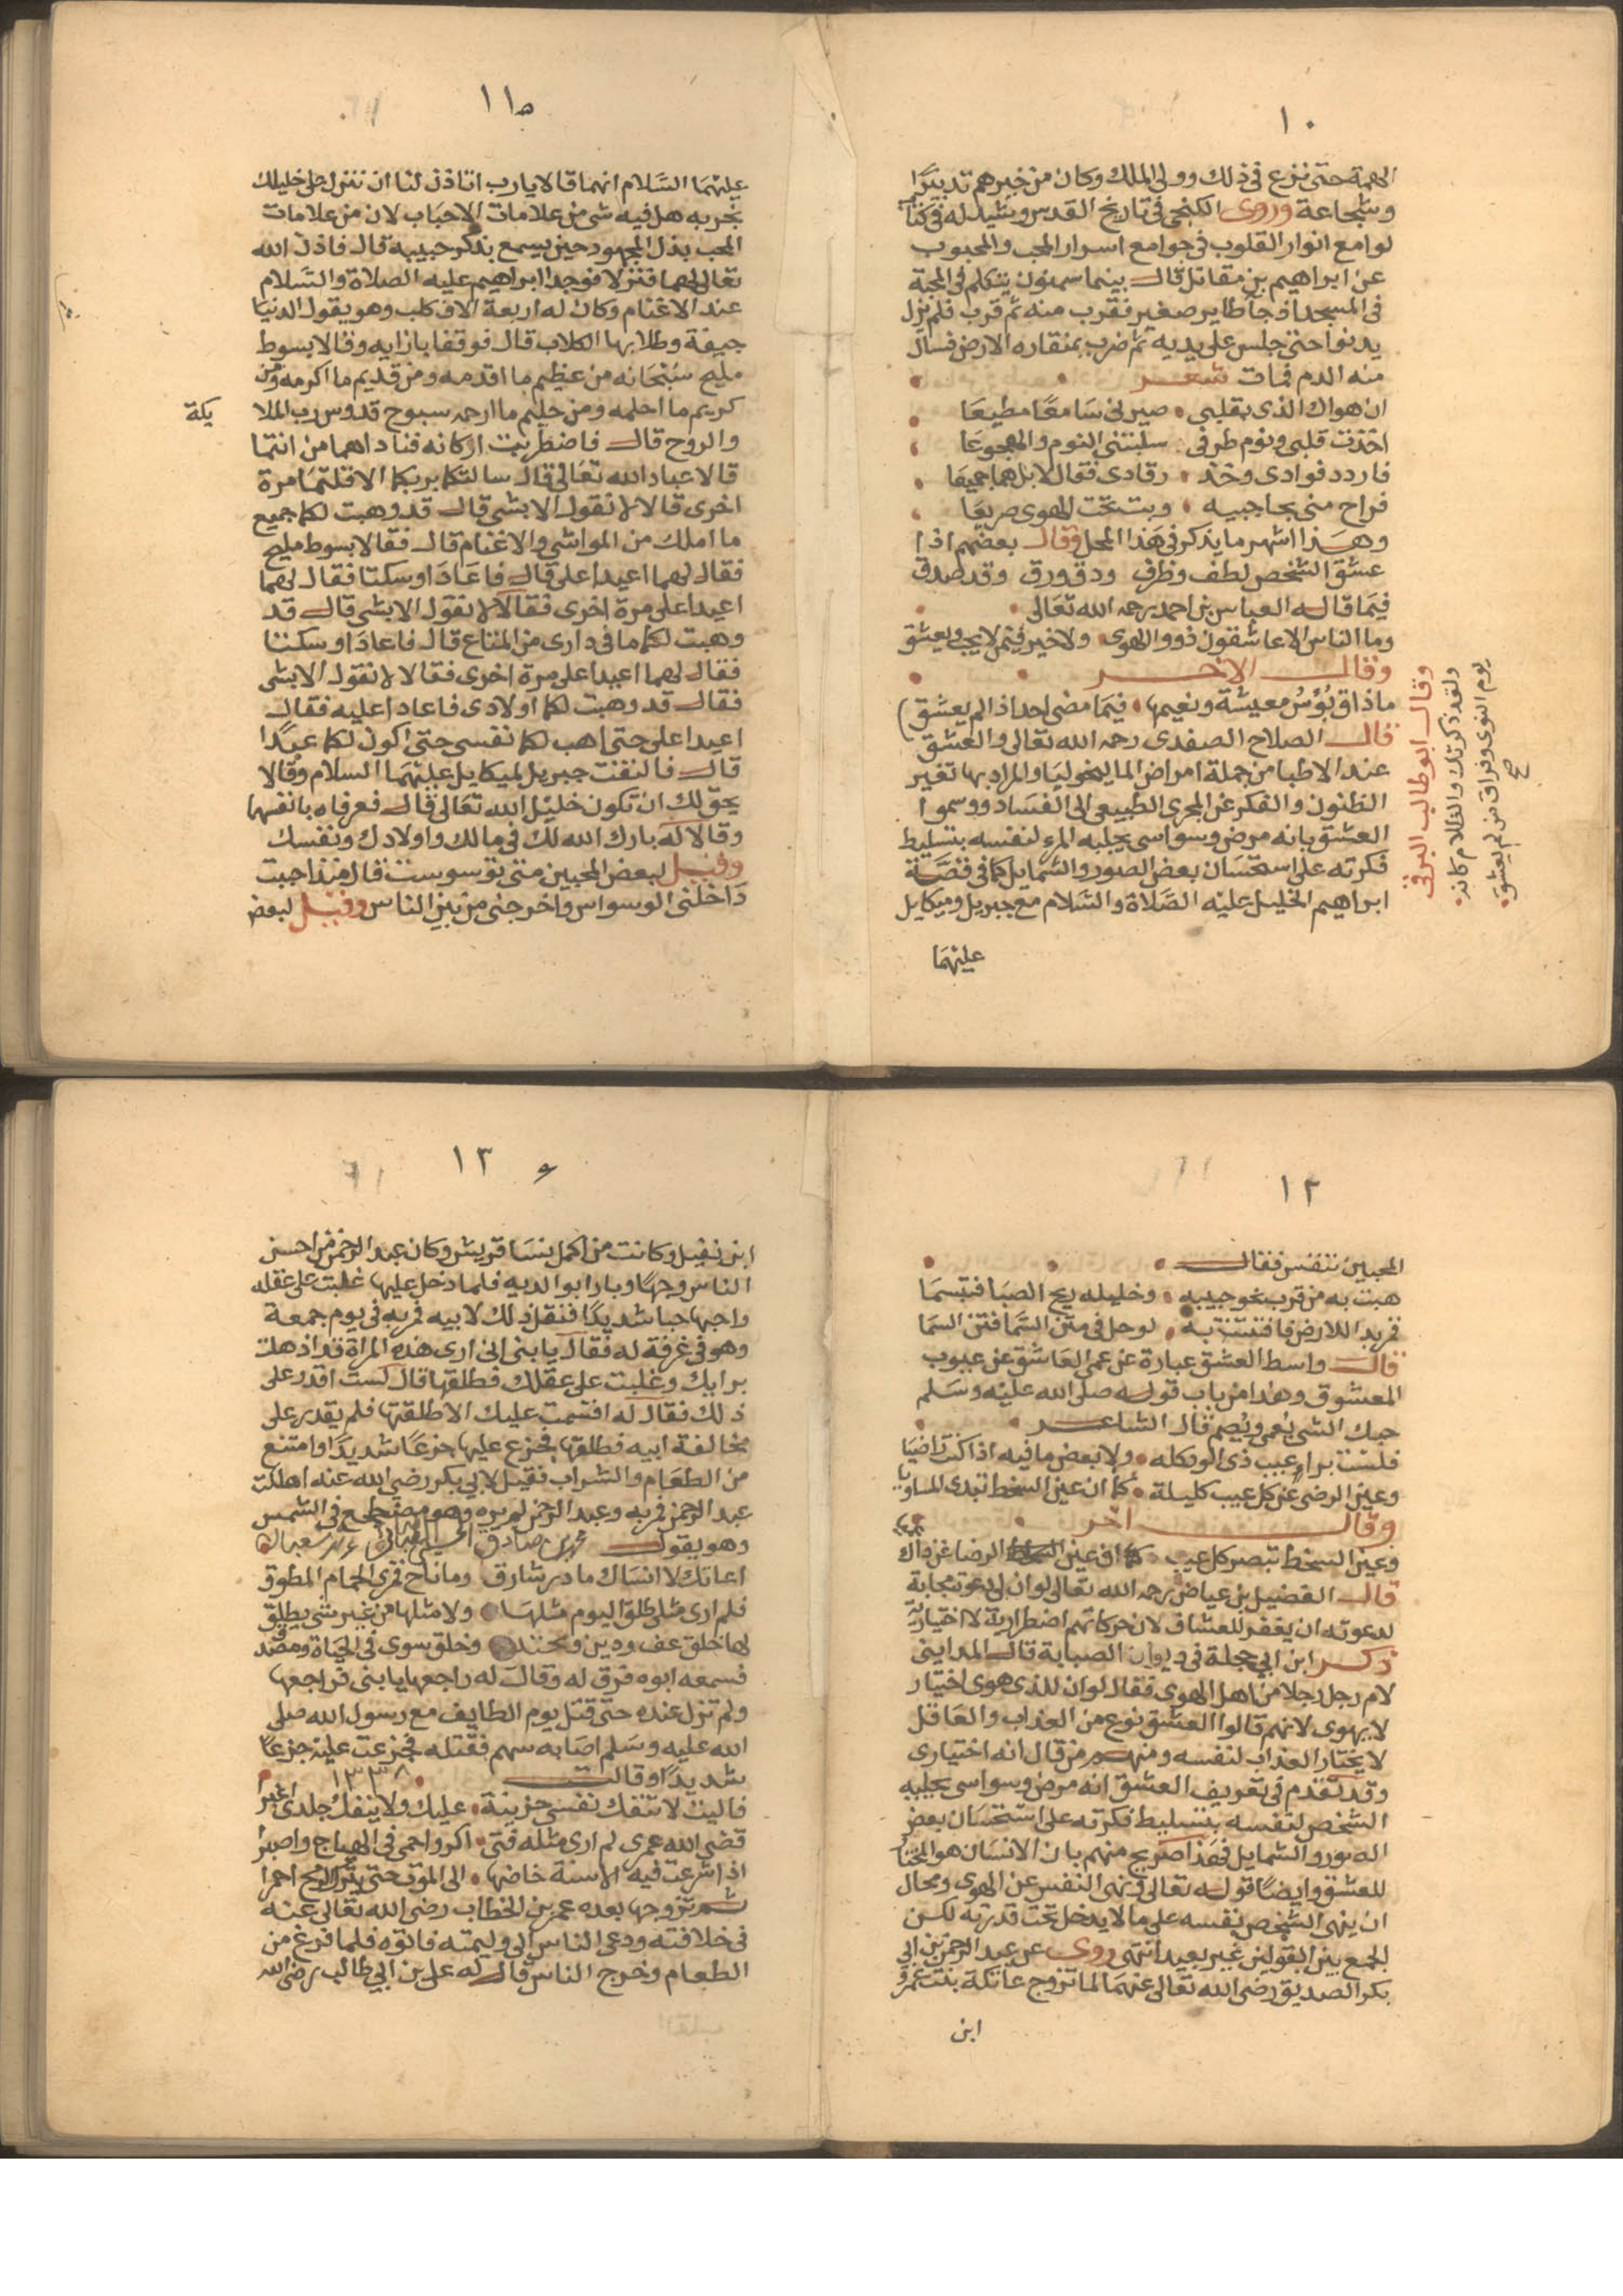 ١٠
الهمة حتى نزع في ذلك وولي الملك وكان من خيرهم تدبيرا
وشجاعة وروى الكنجي في تاريخ القدس وشيدله في كتاب
لوامع انوار القلوب في جوامع اسرار المحب والمحبوب
عن ابراهيم بن مقاتل قال بينما سمنون يتكلم في المحبة
في المسجد اذ جا طاير صغير فقرب منه ثم قرب فلم يزل
يدنوا حتى جلس على يديه ثم ضرب بمنقاره الارض فسال
منه الدم فمات شعر
ان هواك الذي بقلبي صيرني سامعا مطيعا
اخذت قلبي ونوم طرفي سلبتني النوم والهجوعا
فاردد فوادي وخذ رقادي فقال لا بل هما جميعا
فراح مني بحاجبيه وبت تحت الهوى صريعا
وهذا اشهر ما يذكر في هذا المحل وقال بعضهم اذا
عشق الشخص لطف وظرف ودق ورق وقد صدق
فيما قاله العباس بن احمد رحمه الله تعالى
وما الناس الا عاشقون ذووا الهوى ولا خير فيمن لا يحب ويعشق
وقال الاخر
ماذاق بؤس معيشة ونعيمها فيما مضى احد اذا لم يعشق
قال الصلاح الصفدي رحمه الله تعالى والعشق
عند الاطبا من جملة امراض الماليخوليا والمراد بها تغير
الظنون والفكر عن المجرى الطبيعي الى الفساد ووسموا
العشق بانه مرض وسواسي يجلبه المرء لنفسه بتسليط
فكرته على استحسان بعض الصور والشمايل كما في قصة
ابراهيم الخليل عليه الصلاة والسلام مع جبريل وميكايل
عليهما
وقال ابو طالب الرقي
ولقد ذكرتك والظلام كانه
يوم النوى وفراق من لم يعشق
صح
١١
عليهما السلام انهما قالا يارب اتاذن لنا ان ننزل على خليلك
نجربه هل فيه شى من علامات الاحباب لان من علامات
المحب بذل المجهود حين يسمع بذكر حبيبه قال فاذن الله
تعالى لهما فنزلا فوجدا ابراهيم عليه الصلاة والسلام
عند الاغنام وكان له اربعة الاف كلب وهو يقول الدنيا
جيفة وطلابها الكلاب قال فوقفا بازايه وقالا بسوط
مليح سبحانه من عظيم ما اقدمه ومن قديم ما اكرمه ومن
كريم ما احلمه ومن حليم ما ارحمه سبوح قدوس رب الملا
يكة
والروح قال فاضطربت اركانه فناداهما من انتما
قالا عباد الله تعالى قال سالتكما بربكما الا قلتما مرة
اخرى قالا لا نقول الا بشى قال قد وهبت لكما جميع
ما املك من المواشي والاغنام قال فقالا بسوط مليح
فقال لهما اعيدا علي قال فاعادا وسكتا فقال لهما
اعيدا علي مرة اخرى فقالا لا نقول الا بشى قال قد
وهبت لكما ما في داري من المتاع قال فاعادا وسكتا
فقال لهما اعيدا علي مرة اخرى فقالا لا نقول الا بشى
فقال قد وهبت لكما اولادي فاعادا عليه فقال
اعيدا علي حتى اهب لكما نفسي حتى اكون لكما عبدا
قال فالتفت جبريل لميكايل عليهما السلام وقالا
يحق لك ان تكون خليل الله تعالى قال فعرفاه بانفسهما
وقالا له بارك الله لك في مالك واولادك ونفسك
وقيل لبعض المحبين متى توسوست قال منذ احببت
داخلني الوسواس واخرجني من بين الناس وقيل لبعض
١٢
المحبين تنفس فقال
هبت به من قرب نحو حبيبه وخليله ريح الصبا فتبسما
قمر بدا للارض فافتتنت به لو حل في متن السما فتن السما
قال واسط العشق عبارة عن عمى العاشق عن عيوب
المعشوق وهذا من باب قوله صلى الله عليه وسلم
حبك الشي يعمي ويصم قال الشاعر
فلست براء عيب ذي الود كله ولا بعض ما فيه اذا كنت راضيا
وعين الرضى عن كل عيب كليلة كما ان عين السخط تبدي المساويا
وقال اخر
وعين السخط تبصر كل عيب وعين الرضا عن ذاك
قال الفضيل بن عياض رحمه الله تعالى لو ان لي دعوة مجابة
لدعوته ان يغفر للعشاق لان حركاتهم اضطرارية لا اختيارية
ذكر ابن ابي حجلة في ديوان الصبابة قال المدايني
لام رجل رجلا من اهل الهوى فقال لو ان للذي هوى اختيار
لا يهوى لانهم قالوا العشق نوع من العذاب والعاقل
لا يختار العذاب لنفسه ومنهم من قال انه اختياري
وقد تقدم في تعريف العشق انه مرض وسواسي يجلبه
الشخص لنفسه بتسليط فكرته على استحسان بعض
الصور والشمايل فهذا صريح منهم بان الانسان هو المختار
للعشق وايضا قوله تعالى ونهى النفس عن الهوى ومحال
ان ينهى الشخص نفسه على ما لا يدخل تحت قدرته لكن
الجمع بين القولين غير بعيد انتهى روى عن عبد الرحمن بن ابي
بكر الصديق رضي الله تعالى عنهما لما تزوج عاتكة بنت عمرو
ابن
١٣
ابن نفيل وكانت من اكمل نسا قريش وكان عبد الرحمن من احسن
الناس وجها وبارا بوالديه فلما دخل عليها غلبت على عقله
واحبها حبا شديدا فنقل ذلك لابيه فمر به في يوم جمعة
وهو في غرفة له فقال يا بني اني ارى هذه المراة قد اذهلت
برايك وغلبت على عقلك فطلقها قال لست اقدر على
ذلك فقال له اقسمت عليك الا طلقتها فلم يقدر على
مخالفة ابيه فطلقها فجزع عليها جزعا شديدا وامتنع
من الطعام والشراب فقيل لابي بكر رضي الله عنه اهلكت
عبد الرحمن فمر به وعبد الرحمن لم يره وهو مضطجع في الشمس
وهو يقول
اعاتك لا انساك ما در شارق وما ناح قمري الحمام المطوق
فلم ارى مثلي طلق اليوم مثلها ولا مثلها من غير شي يطلق
لها خلق عف ودين ومحتد وخلق سوى في الحياة ومصدق
فسمعه ابوه فرق له وقال له راجعها يا بني فراجعها
ولم تزل عنده حتى قتل يوم الطايف مع رسول الله صلى
الله عليه وسلم اصابه سهم فقتله فجزعت عليه جزعا
شديدا وقالت
١٣٣٨
فاليت لا تنفك نفسي حزينة عليك ولا ينفك جلدي اغبرا
قضى الله عمري لم ارى مثله فتى اكر واحمى في الهياج واصبرا
اذا شرعت فيه الاسنة خاضها الى الموت حتى يترك الرمح احمرا
ثم تزوجها بعده عمر بن الخطاب رضي الله تعالى عنه
في خلافته ودعى الناس الى وليمته فاتوه فلما فرغ من
الطعام وخرج الناس قال له علي بن ابي طالب رضي الله